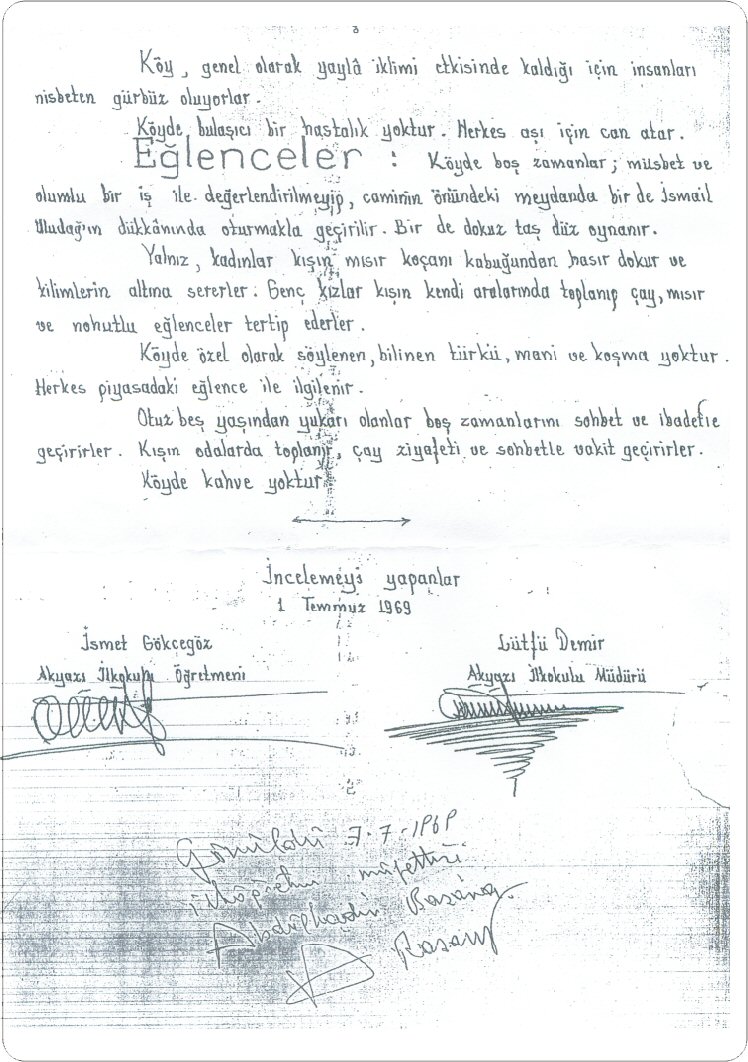 8
Köy, genel olarak yaylâ iklimi etkisinde kaldığı için insanları
nisbeten gürbüz oluyorlar.
Köyde bulaşıcı bir hastalık yoktur. Herkes aşı için can atar.
Eğlenceler : Köyde boş zamanlar; müsbet ve
olumlu bir iş ile değerlendirilmeyip, camiinin önündeki meydanda bir de İsmail
Uludağın dükkânında oturmakla geçirilir. Bir de dokuz taş düz oynanır.
Yalnız, kadınlar kışın mısır koçanı kabuğundan hasır dokur ve
kilimlerin altına sererler. Genç kızlar kışın kendi aralarında toplanıp çay, mısır
ve nohutlu eğlenceler tertip ederler.
Köyde özel olarak söylenen, bilinen türkü, mani ve koşma yoktur.
Herkes piyasadaki eğlence ile ilgilenir.
Otuz beş yaşından yukarı olanlar boş zamanlarını sohbet ve ibadetle
geçirirler. Kışın odalarda toplanır, çay ziyafeti ve sohbetle vakit geçirirler.
Köyde kahve yoktur.
İncelemeyi yapanlar
1 Temmuz 1969
İsmet Gökcegöz Lütfü Demir
Akyazı İlkokulu Öğretmeni Akyazı İlkokulu Müdürü
Görüldü 7-7-1969
ilköğretim müfettişi